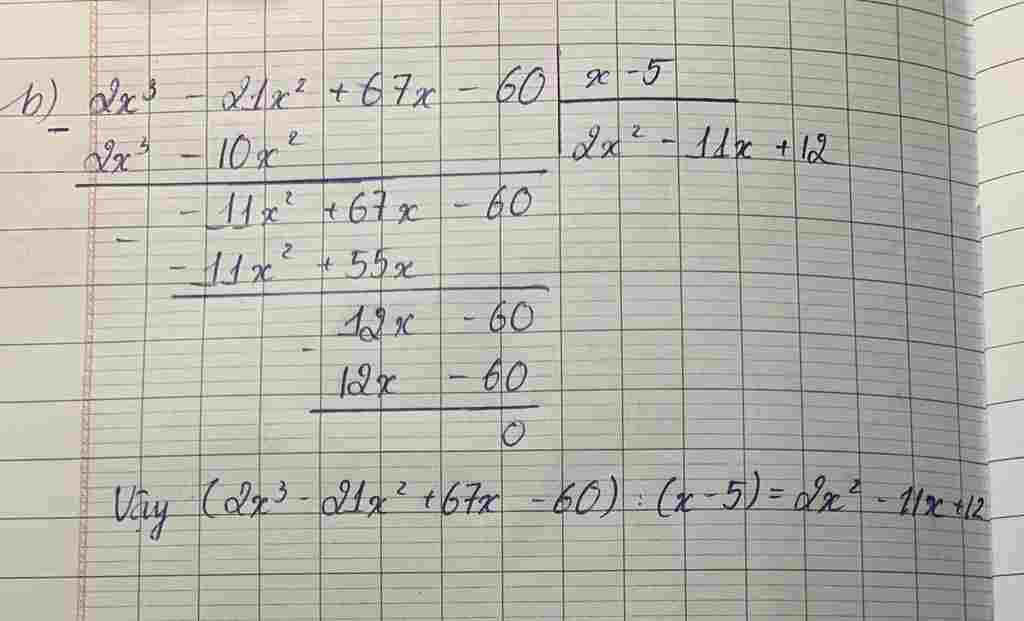 b) 2x³ - 21x² + 67x - 60 | x - 5
- 2x³ - 10x² | 2x² - 11x + 12
- 11x² + 67x - 60
-
- 11x² + 55x
12x - 60
-
12x - 60
0
Vậy (2x³ - 21x² + 67x - 60) : (x - 5) = 2x² - 11x + 12